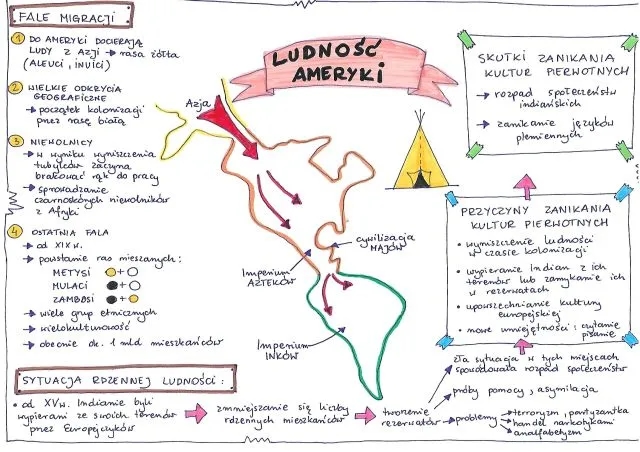 FALE MIGRACJI
1 DO AMERYKI DOCIERAJĄ
LUDY Z AZJI → rasa żółta
(ALEUCI, INUICI)
2 WIELKIE ODKRYCIA
GEOGRAFICZNE
→ początek kolonizacji
przez rasę białą
3 NIEWOLNICY
→ w wyniku wyniszczenia
tubylców zaczyna
brakować rąk do pracy
→ sprowadzanie
czarnoskórych niewolników
z Afryki
4 OSTATNIA FALA
→ od XIX w.
→ powstanie ras mieszanych:
METYSI +
MULACI +
ZAMBOSI +
→ wiele grup etnicznych
→ wielokulturowość
→ obecnie ok. 1 mld mieszkańców
LUDNOŚĆ
AMERYKI
Azja
cywilizacja
MAJÓW
Imperium
AZTEKÓW
Imperium
INKÓW
SKUTKI ZANIKANIA
KULTUR PIERWOTNYCH
→ rozpad społeczeństw
indiańskich
→ zanikanie języków
plemiennych
PRZYCZYNY ZANIKANIA
KULTUR PIERWOTNYCH
• wyniszczenie ludności
w czasie kolonizacji
• wypieranie Indian z ich
terenów lub zamykanie ich
w rezerwatach
• upowszechnianie kultury
europejskiej
• nowe umiejętności: czytanie
pisanie
SYTUACJA RDZENNEJ LUDNOŚCI:
• od XV w. Indianie byli
wypierani ze swoich terenów
przez Europejczyków
→ zmniejszanie się liczby
rdzennych mieszkańców
→ tworzenie
rezerwatów
zła sytuacja w tych miejscach
spowodowała rozpad społeczeństw
próby pomocy, asymilacja
problemy
→ terroryzm, partyzantka
→ handel narkotykami
→ analfabetyzm